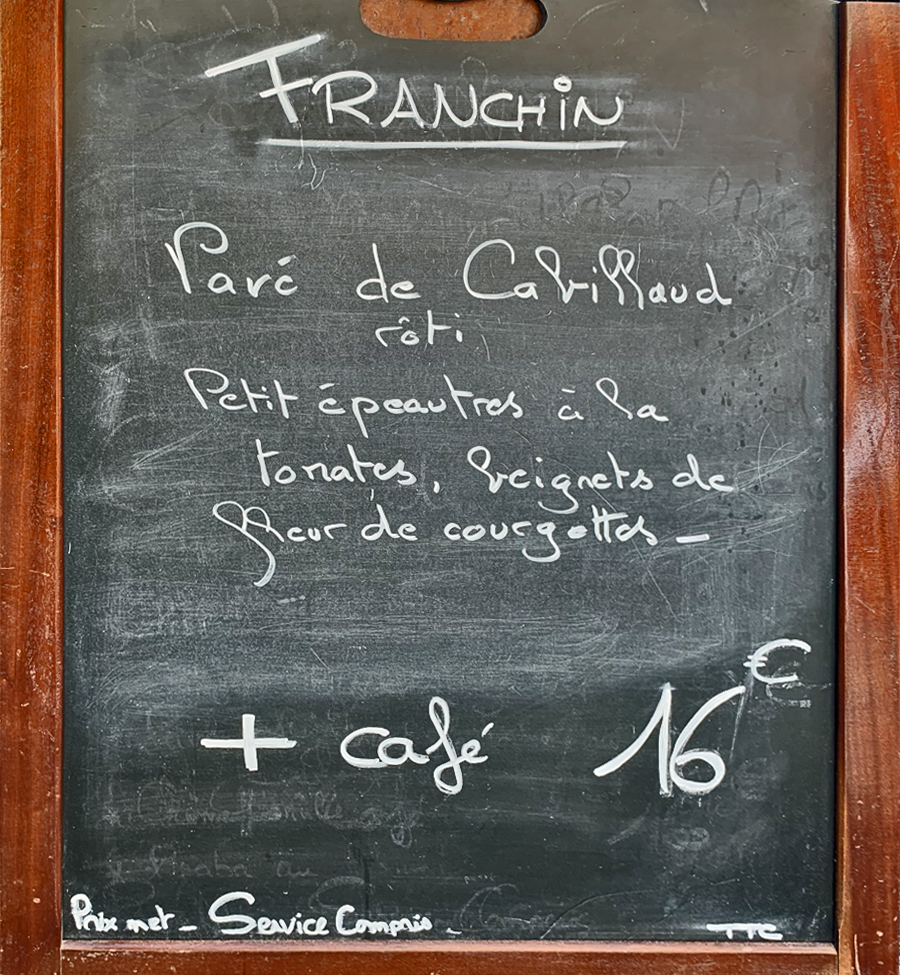 FRANCHIN
Pavé de Cabillaud
rôti,
Petit épeautres à la
tomates, beignets de
fleur de courgettes -
+ café 16€
Prix net - Service Compris - TTC